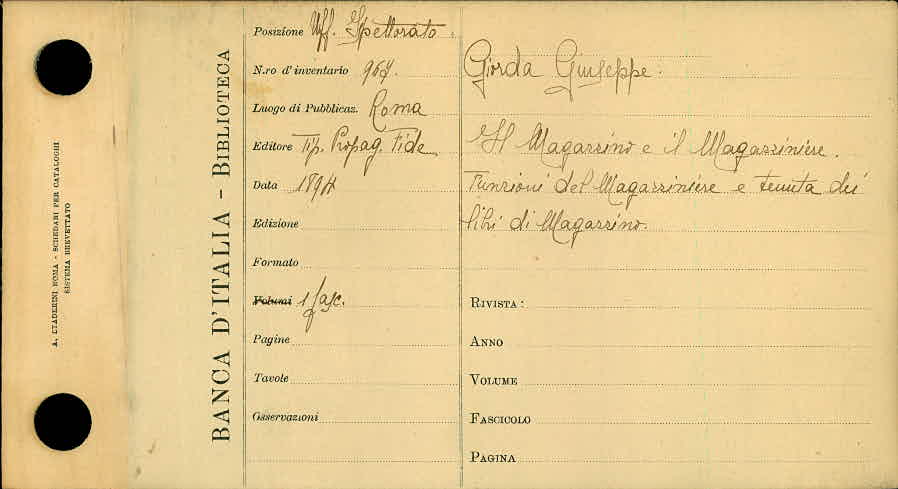 A. STADERINI ROMA - SCHEDARI PER CATALOGHI
SISTEMA BREVETTATO
BANCA D'ITALIA - BIBLIOTECA
Posizione Uff. Ispettorato.
N.ro d'inventario 967.
Luogo di Pubblicaz. Roma
Editore Tip. Propag. Fide
Data 1894
Edizione
Formato
Volumi 1 fasc.
Pagine
Tavole
Osservazioni
Giorda Giuseppe.
Il Magazzino e il Magazziniere.
Funzioni del Magazziniere e tenuta dei
libri di Magazzino.
RIVISTA:
ANNO
VOLUME
FASCICOLO
PAGINA